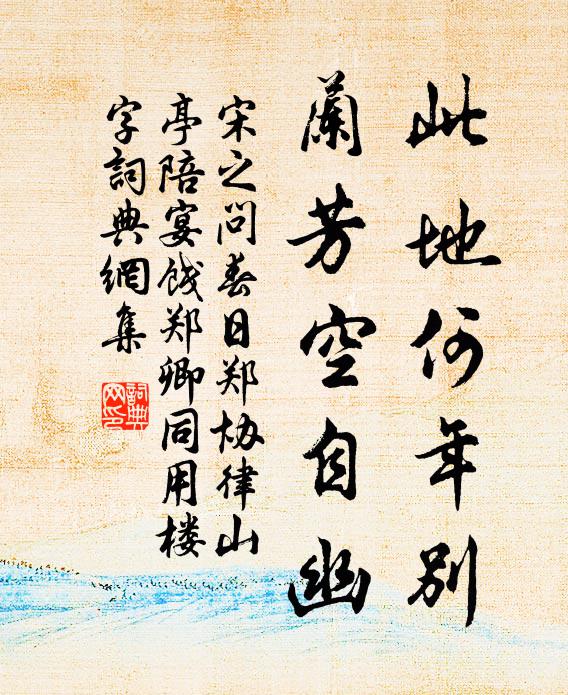 此地何年别
蘭芳空自幽
宋之问春日郑协律山
亭陪宴饯郑卿同用楼
字詞典網集
詞典网印